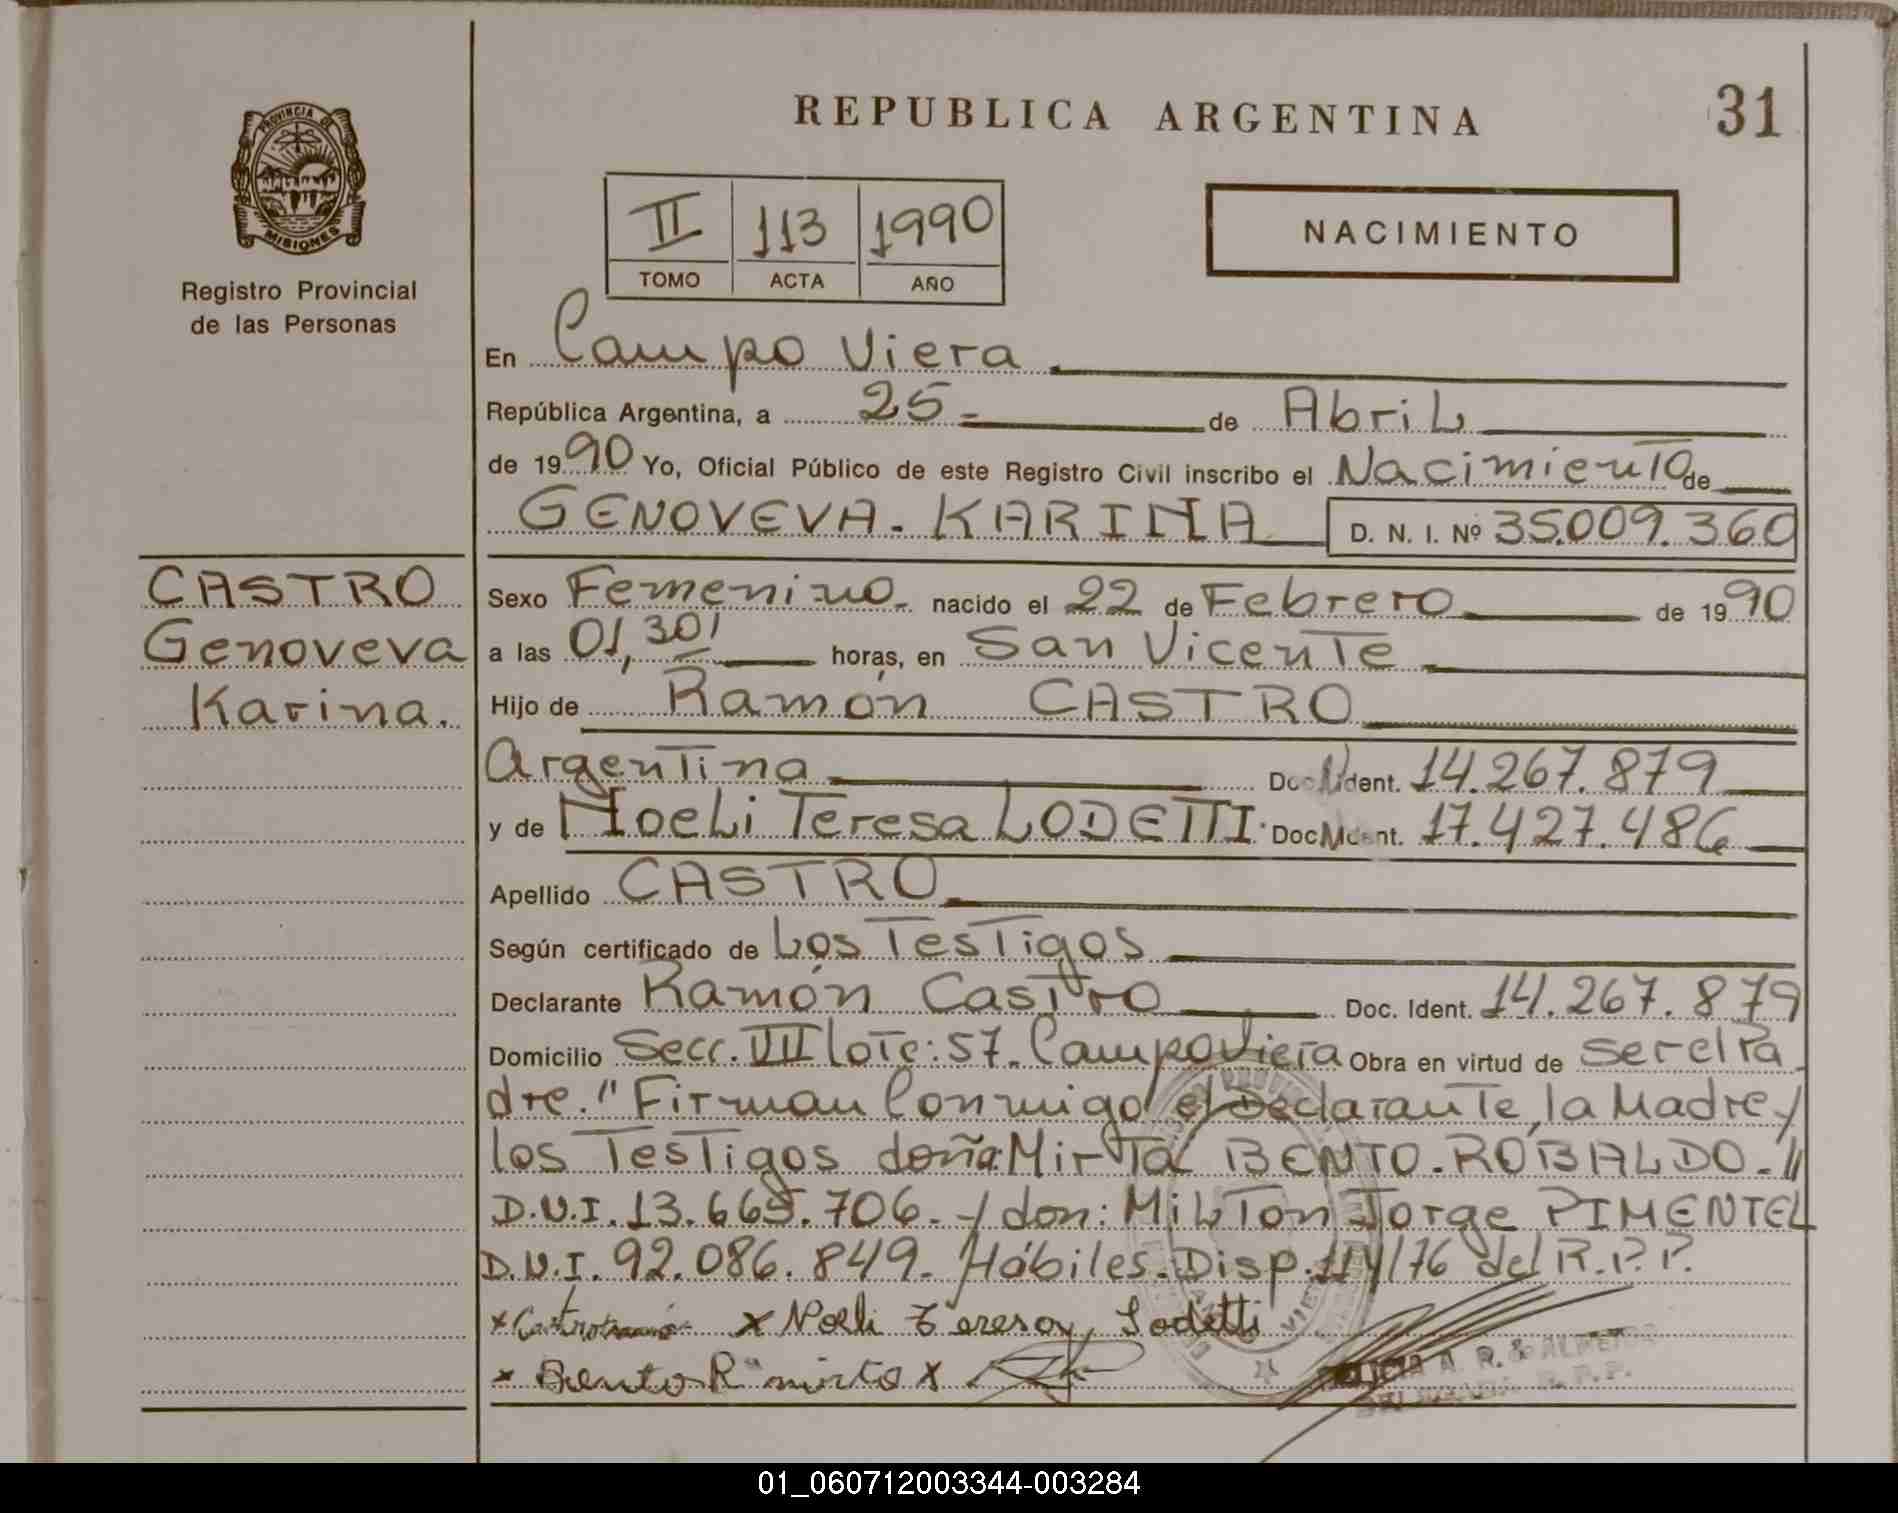 REPUBLICA ARGENTINA
31
PROVINCIA DE
MISIONES
Registro Provincial
de las Personas
II 113 1990
TOMO ACTA AÑO
NACIMIENTO
En Campo Viera
República Argentina, a 25- de Abril
de 1990 Yo, Oficial Público de este Registro Civil inscribo el Nacimiento de
GENOVEVA-KARINA D. N. I. Nº 35.009.360
CASTRO
Genoveva
Karina.
Sexo Femenino- nacido el 22 de Febrero de 1990
a las 01,30' horas, en San Vicente
Hijo de Ramón CASTRO
Argentina Doc. Ident. 14.267.879
y de Noeli Teresa LODETTI. Doc. Ident. 17.427.486
Apellido CASTRO
Según certificado de Los Testigos
Declarante Ramón Castro Doc. Ident. 14.267.879
Domicilio Secc. VII lote: 57. Campo Viera Obra en virtud de ser el Pa
dre." Firman Conmigo el Declarante, la Madre y
los Testigos doña: Mirta BENTO-ROBALDO-//
D.N.I. 13.665.706.- y don: Milton Jorge PIMENTEL
D.N.I. 92.086.849. Hábiles. Disp. 114/76 del R.P.P.
x Castro x Noeli Teresa Lodetti
x Bento R mirta x
A. R. de
R. P. P.
01_060712003344-003284